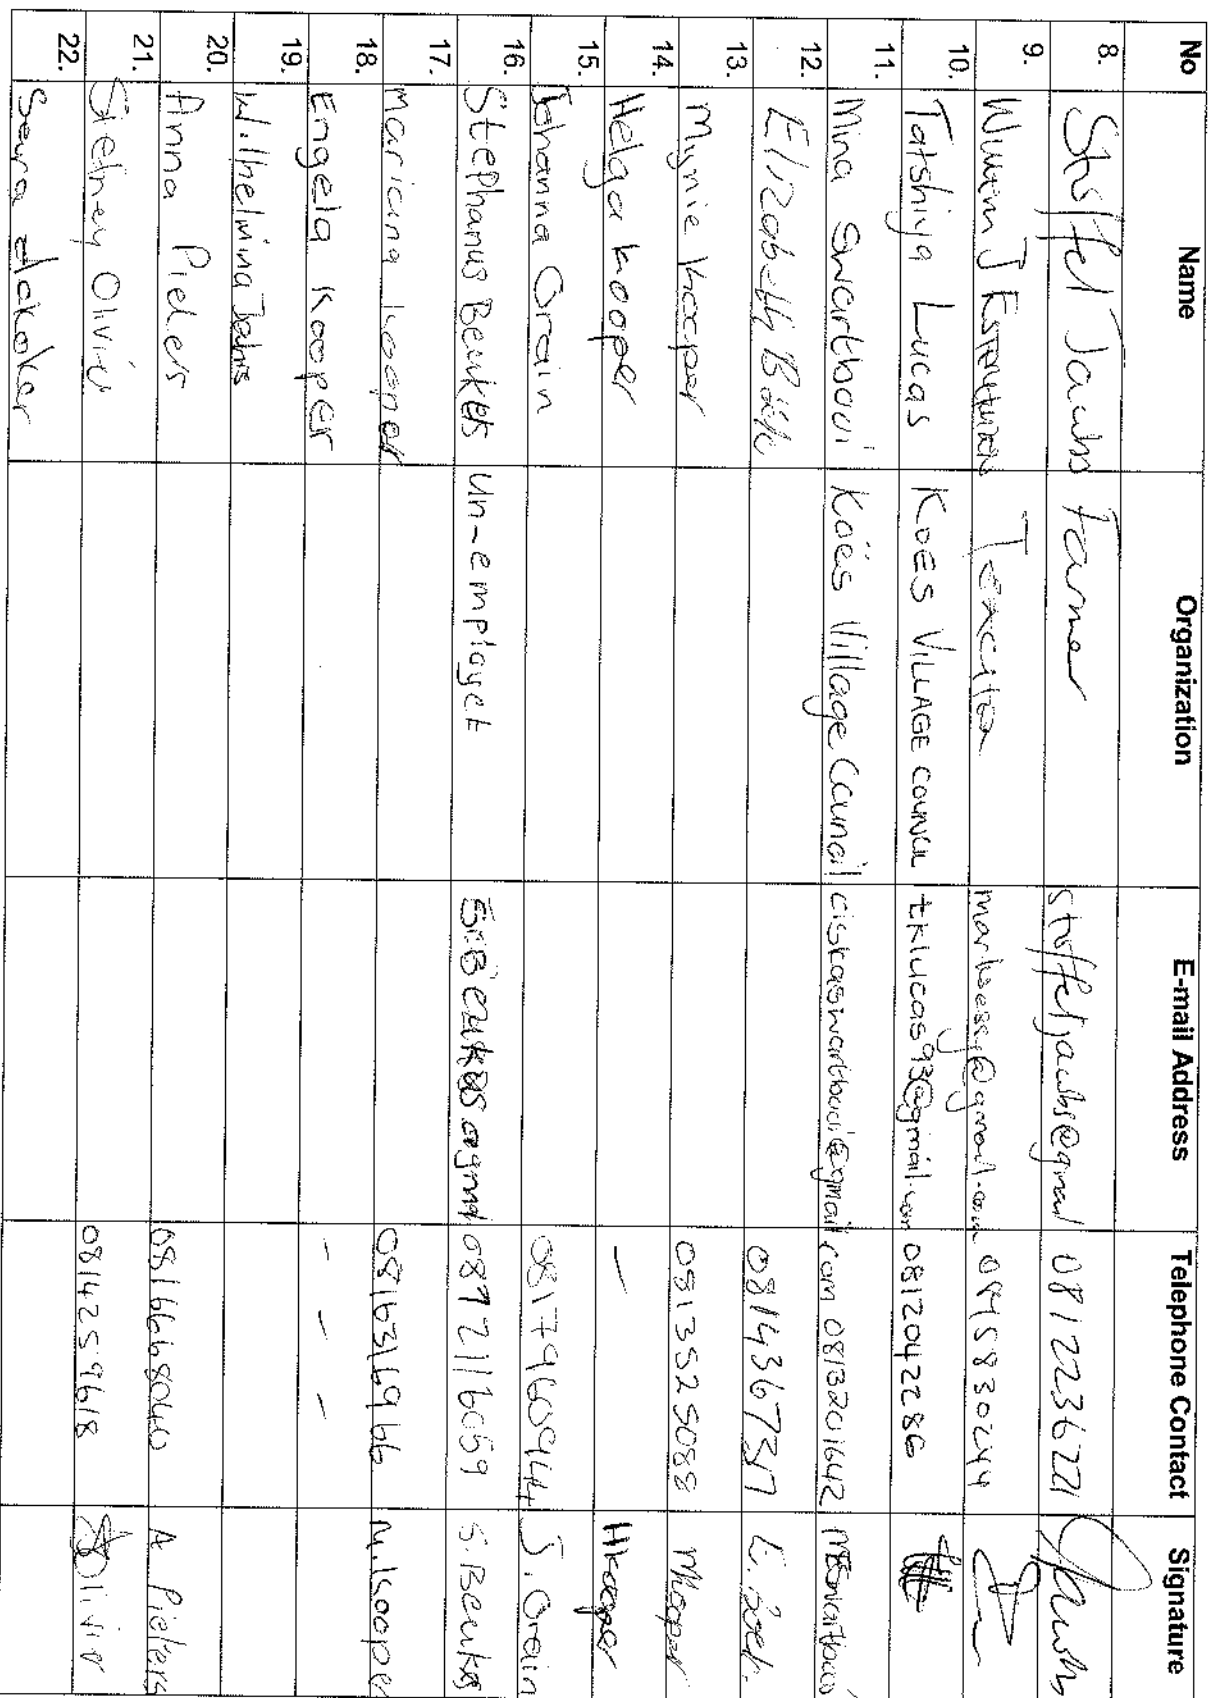 No Name Organization E-mail Address Telephone Contact Signature
8. Stoffel Jacobs Farmer stoffeljacobs@gmail 0812236721 Jacobs
9. Willem J gmail.com
10. Tatshiya Lucas KOES VILLAGE COUNCIL tklucas93@gmail.com 0812042286
11. Mina Swartbooi Koës Village Council ciskaswartbooi@gmail.com 0813201642 MSwartbooi
12. Elizabeth 0814367317 E.
13. Mynie Kooper 0813525088 MKooper
14. Helga Kooper – HKooper
15. Johanna Orain 0817960944 J. Orain
16. Stephanus Beukes Un-employet S. Beukes
17. Mariana Kooper 0816316966 M. Kooper
18. Engela Kooper - - -
19. Wilhelmina Jahrs
20. Anna Pieters 0816668040 A Pieters
21. Siedney Olivier 0814259618 Olivier
22.